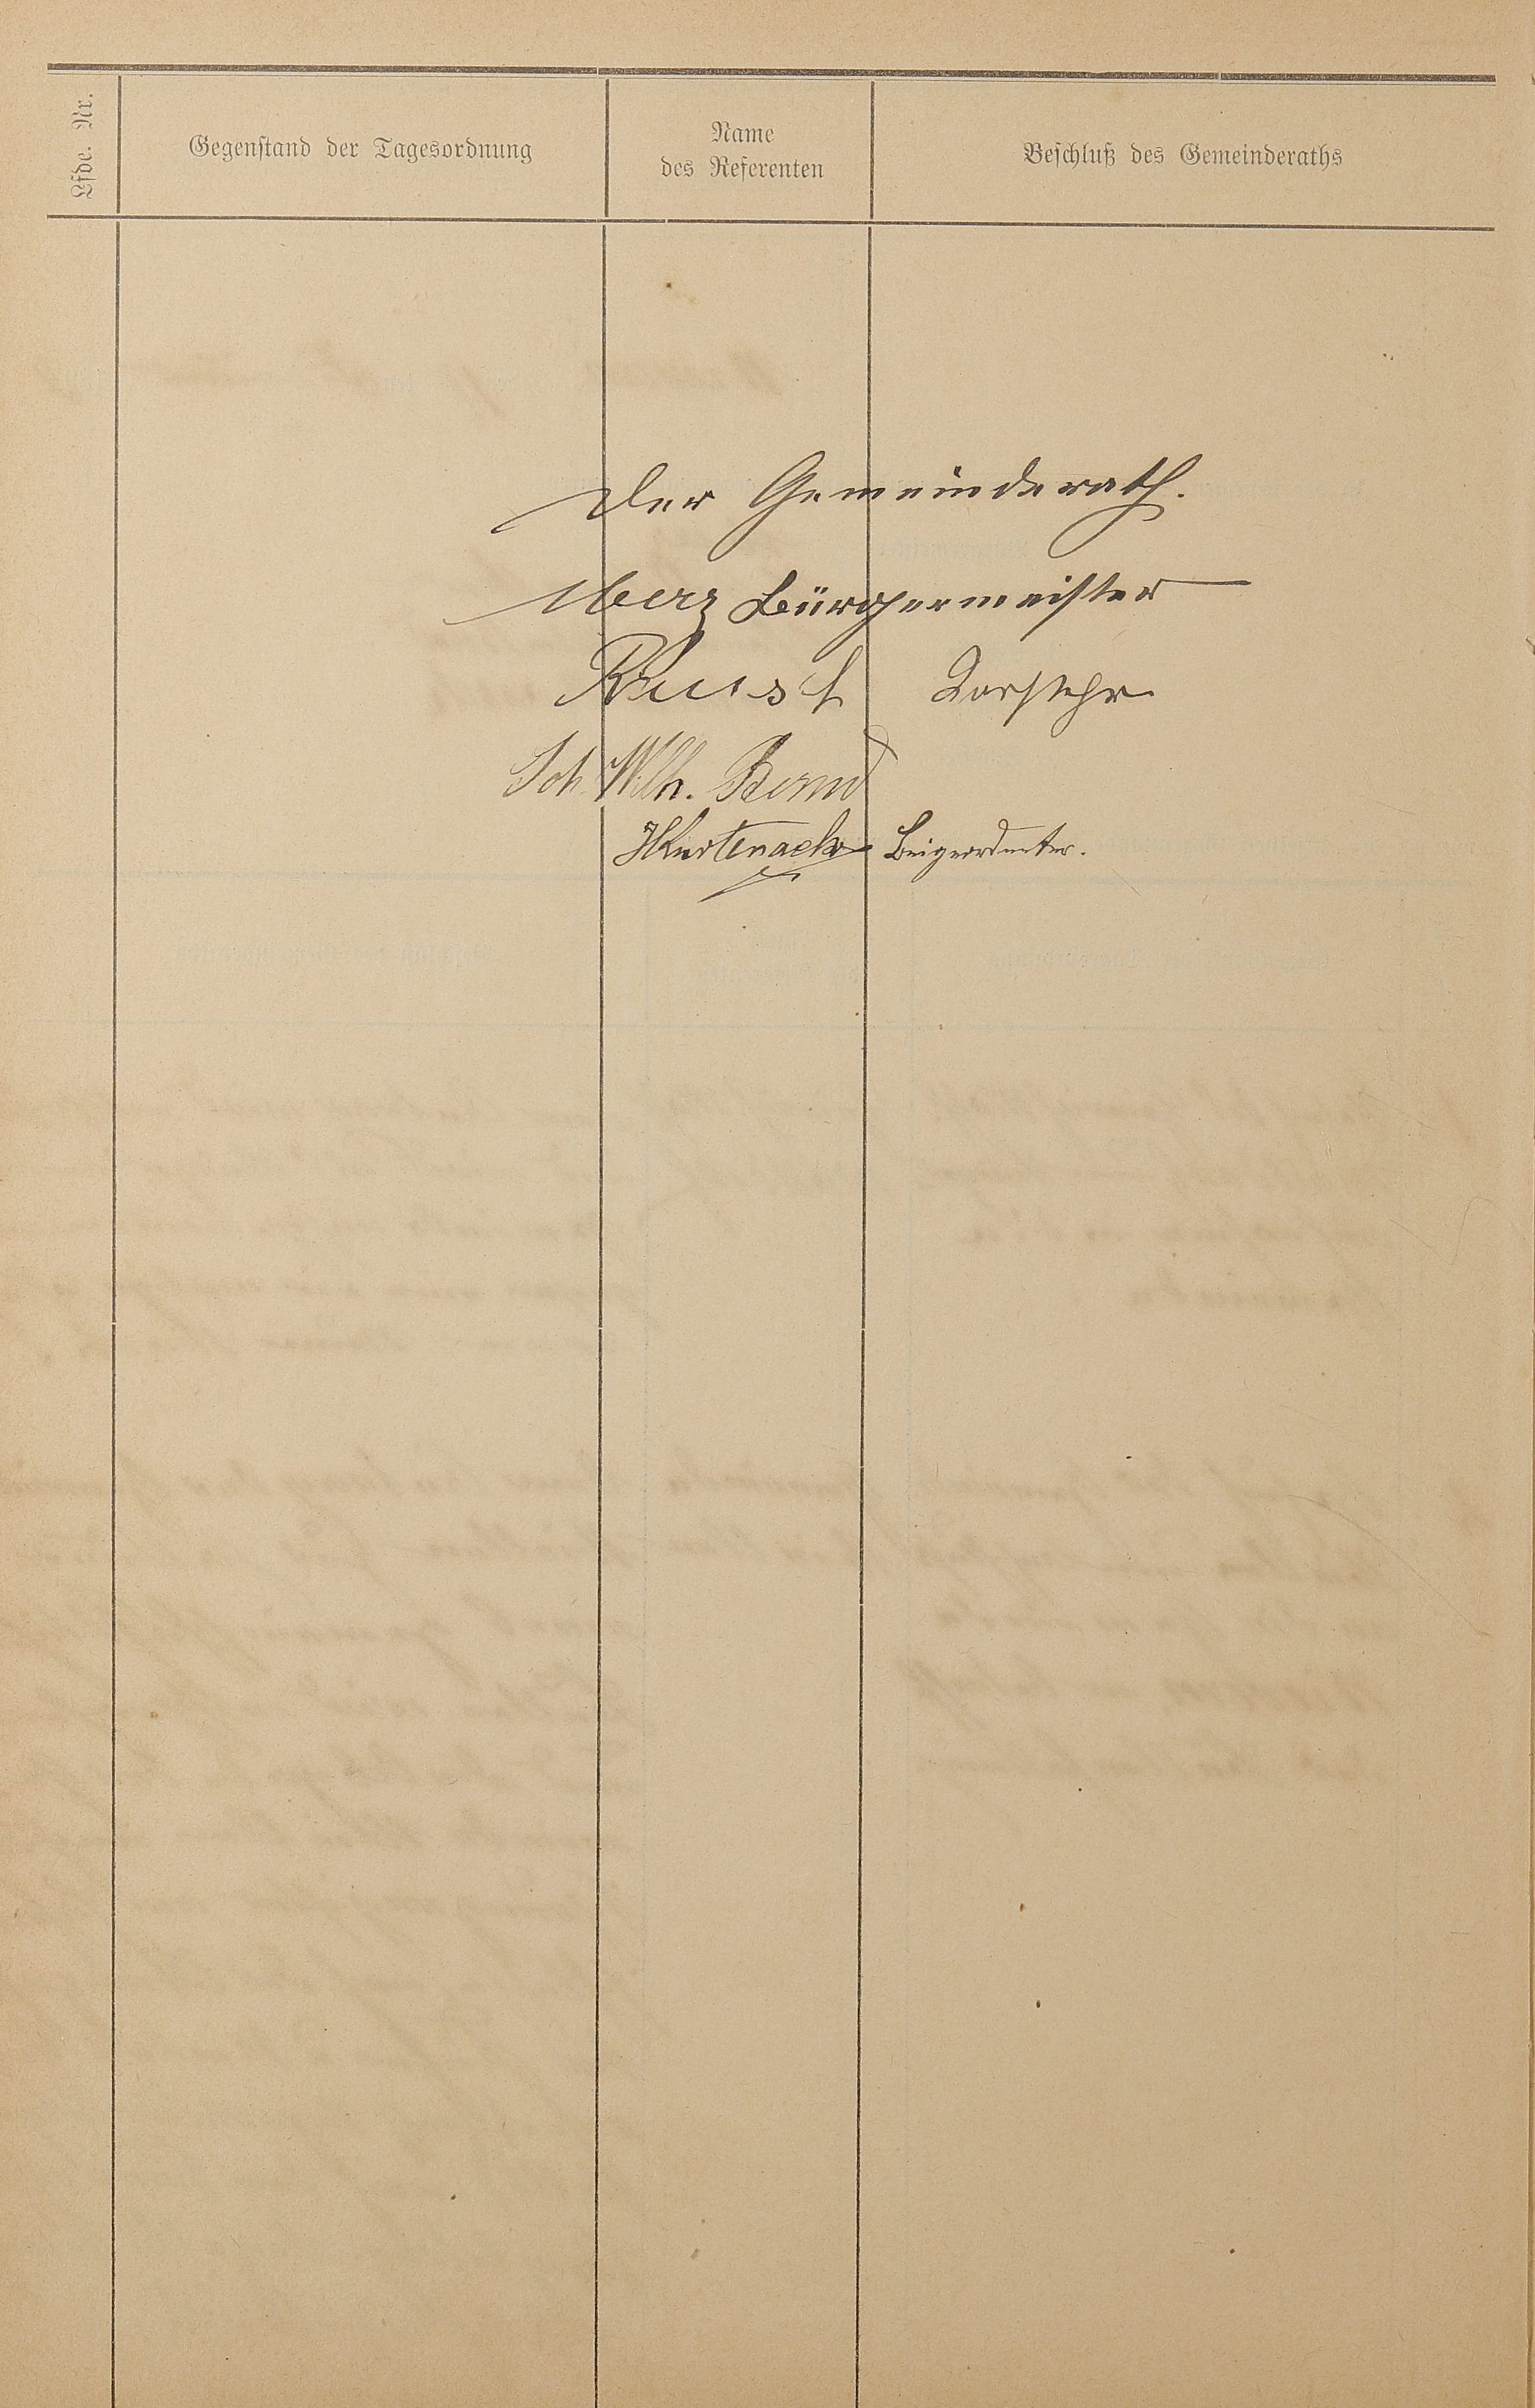 Lfde. Nr.
Gegenstand der Tagesordnung
Name
des Referenten
Beschluß des Gemeinderaths
Der Gemeinderath.
Merz Bürgermeister
Vorsteher
Joh. Wilh. Bernd
Beigeordneter.